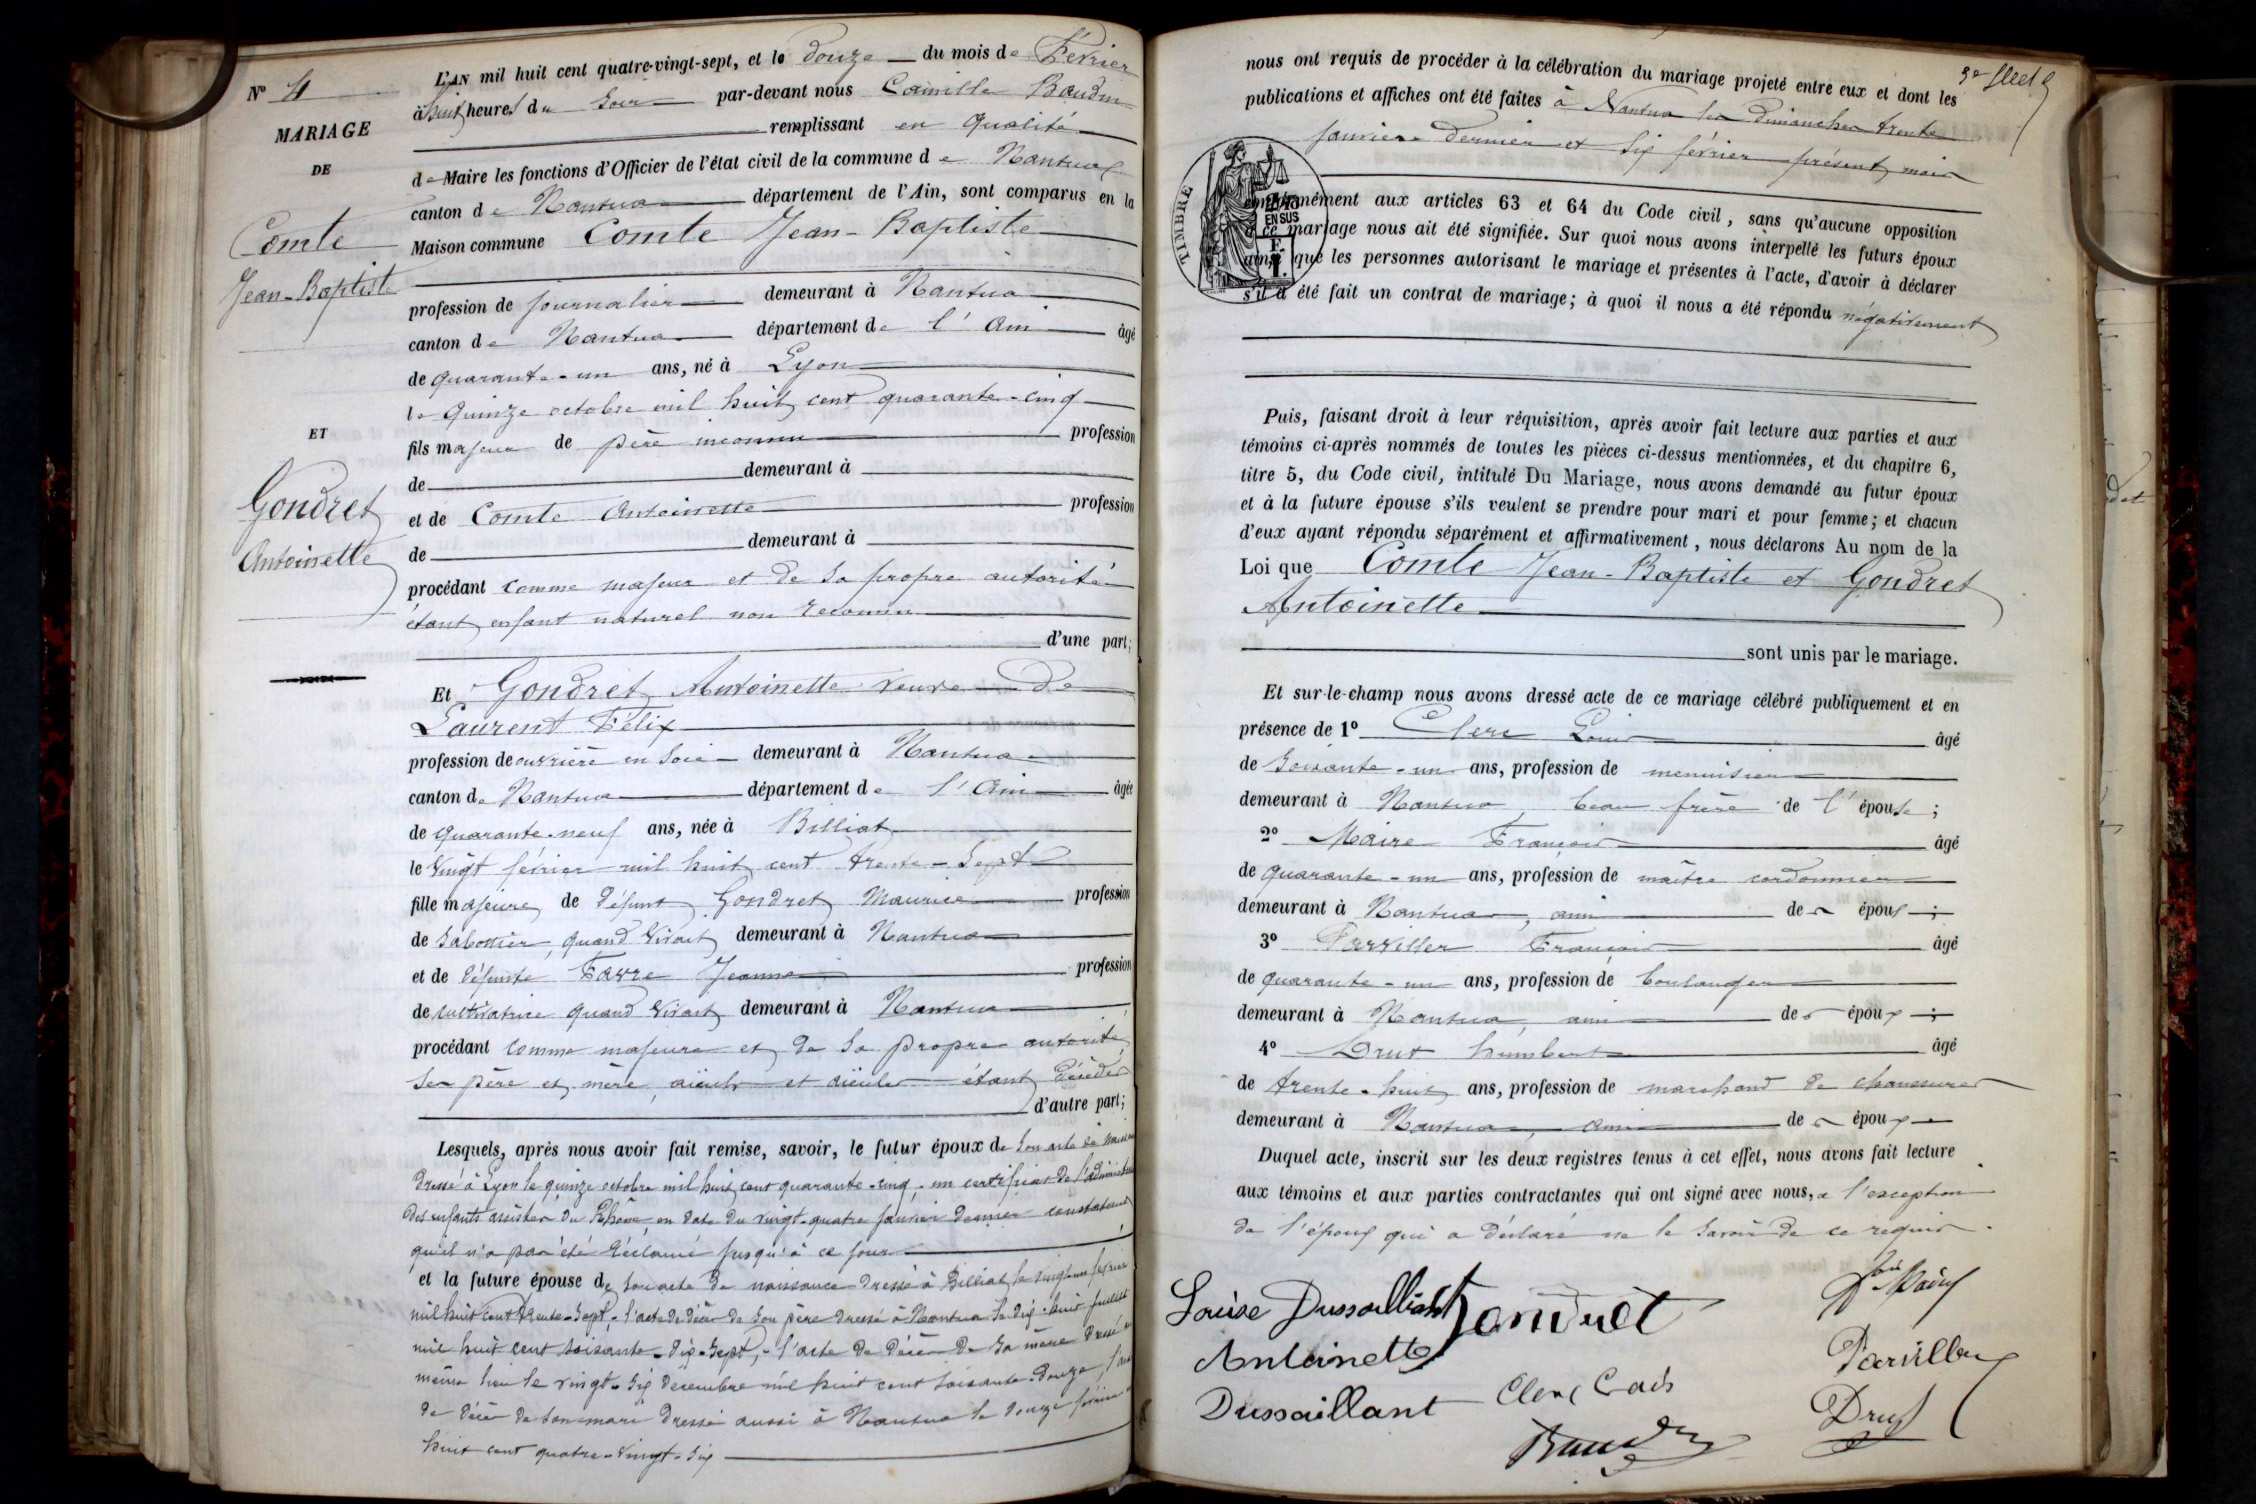 N° 4
MARIAGE
DE
Comte
Jean-Baptiste
ET
Gondret
Antoinette
L'AN mil huit cent quatre-vingt-sept, et le douze du mois de Février
à huit heures du Soir par-devant nous Camille Baudin
remplissant en qualité
de Maire les fonctions d'Officier de l'état civil de la commune de Nantua
canton de Nantua département de l'Ain, sont comparus en la
Maison commune Comte Jean-Baptiste
profession de journalier demeurant à Nantua
canton de Nantua département de l'Ain âgé
de quarante-un ans, né à Lyon
le quinze octobre mil huit cent quarante-cinq
fils majeur de père inconnu profession
de demeurant à
et de Comte Antoinette profession
de demeurant à
procédant comme majeur et de sa propre autorité
étant enfant naturel non reconnu
d'une part;
Et Gondret Antoinette veuve de
Laurent Félix
profession de ouvrière en soie demeurant à Nantua
canton de Nantua département de l'Ain âgée
de quarante-neuf ans, née à Billiat
le vingt février mil huit cent trente-sept
fille majeure de défunt Gondret Maurice profession
de sabotier, quand vivait demeurant à Nantua
et de défunte Favre Jeanne profession
de cultivatrice quand vivait demeurant à Nantua
procédant comme majeure et de sa propre autorité,
ses père et mère, aïeuls et aïeules étant décédés
d'autre part;
Lesquels, après nous avoir fait remise, savoir, le futur époux de son acte de
dressé à Lyon le quinze octobre mil huit cent quarante-cinq, un certificat de
des enfants assistés du Rhône en date du vingt-quatre janvier dernier constatant
qu'il n'a pas été réclamé jusqu'à ce jour
et la future épouse de son acte de naissance dressé à Billiat le vingt-un février
mil huit cent trente-sept, l'acte de décès de son père dressé à Nantua le dix-huit juillet
mil huit cent soixante-dix-sept, l'acte de décès de sa mère dressé au
même lieu le vingt-six décembre mil huit cent soixante-douze,
de décès de son mari dressé aussi à Nantua le douze février
huit cent quatre-vingt-six
nous ont requis de procéder à la célébration du mariage projeté entre eux et dont les
publications et affiches ont été faites à Nantua les Dimanches trente
janvier dernier et six février présent mois
TIMBRE
EN SUS
conformément aux articles 63 et 64 du Code civil, sans qu'aucune opposition
à ce mariage nous ait été signifiée. Sur quoi nous avons interpellé les futurs époux
ainsi que les personnes autorisant le mariage et présentes à l'acte, d'avoir à déclarer
s'il a été fait un contrat de mariage; à quoi il nous a été répondu négativement
Puis, faisant droit à leur réquisition, après avoir fait lecture aux parties et aux
témoins ci-après nommés de toutes les pièces ci-dessus mentionnées, et du chapitre 6,
titre 5, du Code civil, intitulé Du Mariage, nous avons demandé au futur époux
et à la future épouse s'ils veulent se prendre pour mari et pour femme; et chacun
d'eux ayant répondu séparément et affirmativement, nous déclarons Au nom de la
Loi que Comte Jean-Baptiste et Gondret
Antoinette
sont unis par le mariage.
Et sur-le-champ nous avons dressé acte de ce mariage célébré publiquement et en
présence de 1° Clerc Louis âgé
de soixante-un ans, profession de menuisier
demeurant à Nantua, beau frère de l'épouse;
2° Maire François âgé
de quarante-un ans, profession de maître cordonnier
demeurant à Nantua, ami de époux;
3° Parviller François âgé
de quarante-un ans, profession de boulanger
demeurant à Nantua, ami de époux;
4° Drut humbert âgé
de trente-huit ans, profession de marchand de chaussures
demeurant à Nantua, ami de époux
Duquel acte, inscrit sur les deux registres tenus à cet effet, nous avons fait lecture
aux témoins et aux parties contractantes qui ont signé avec nous, a l'exception
de l'époux qui a déclaré ne le savoir de ce requis.
Louise Dussaillant Gondret
Antoinette
Dussaillant
Parviller
Drut